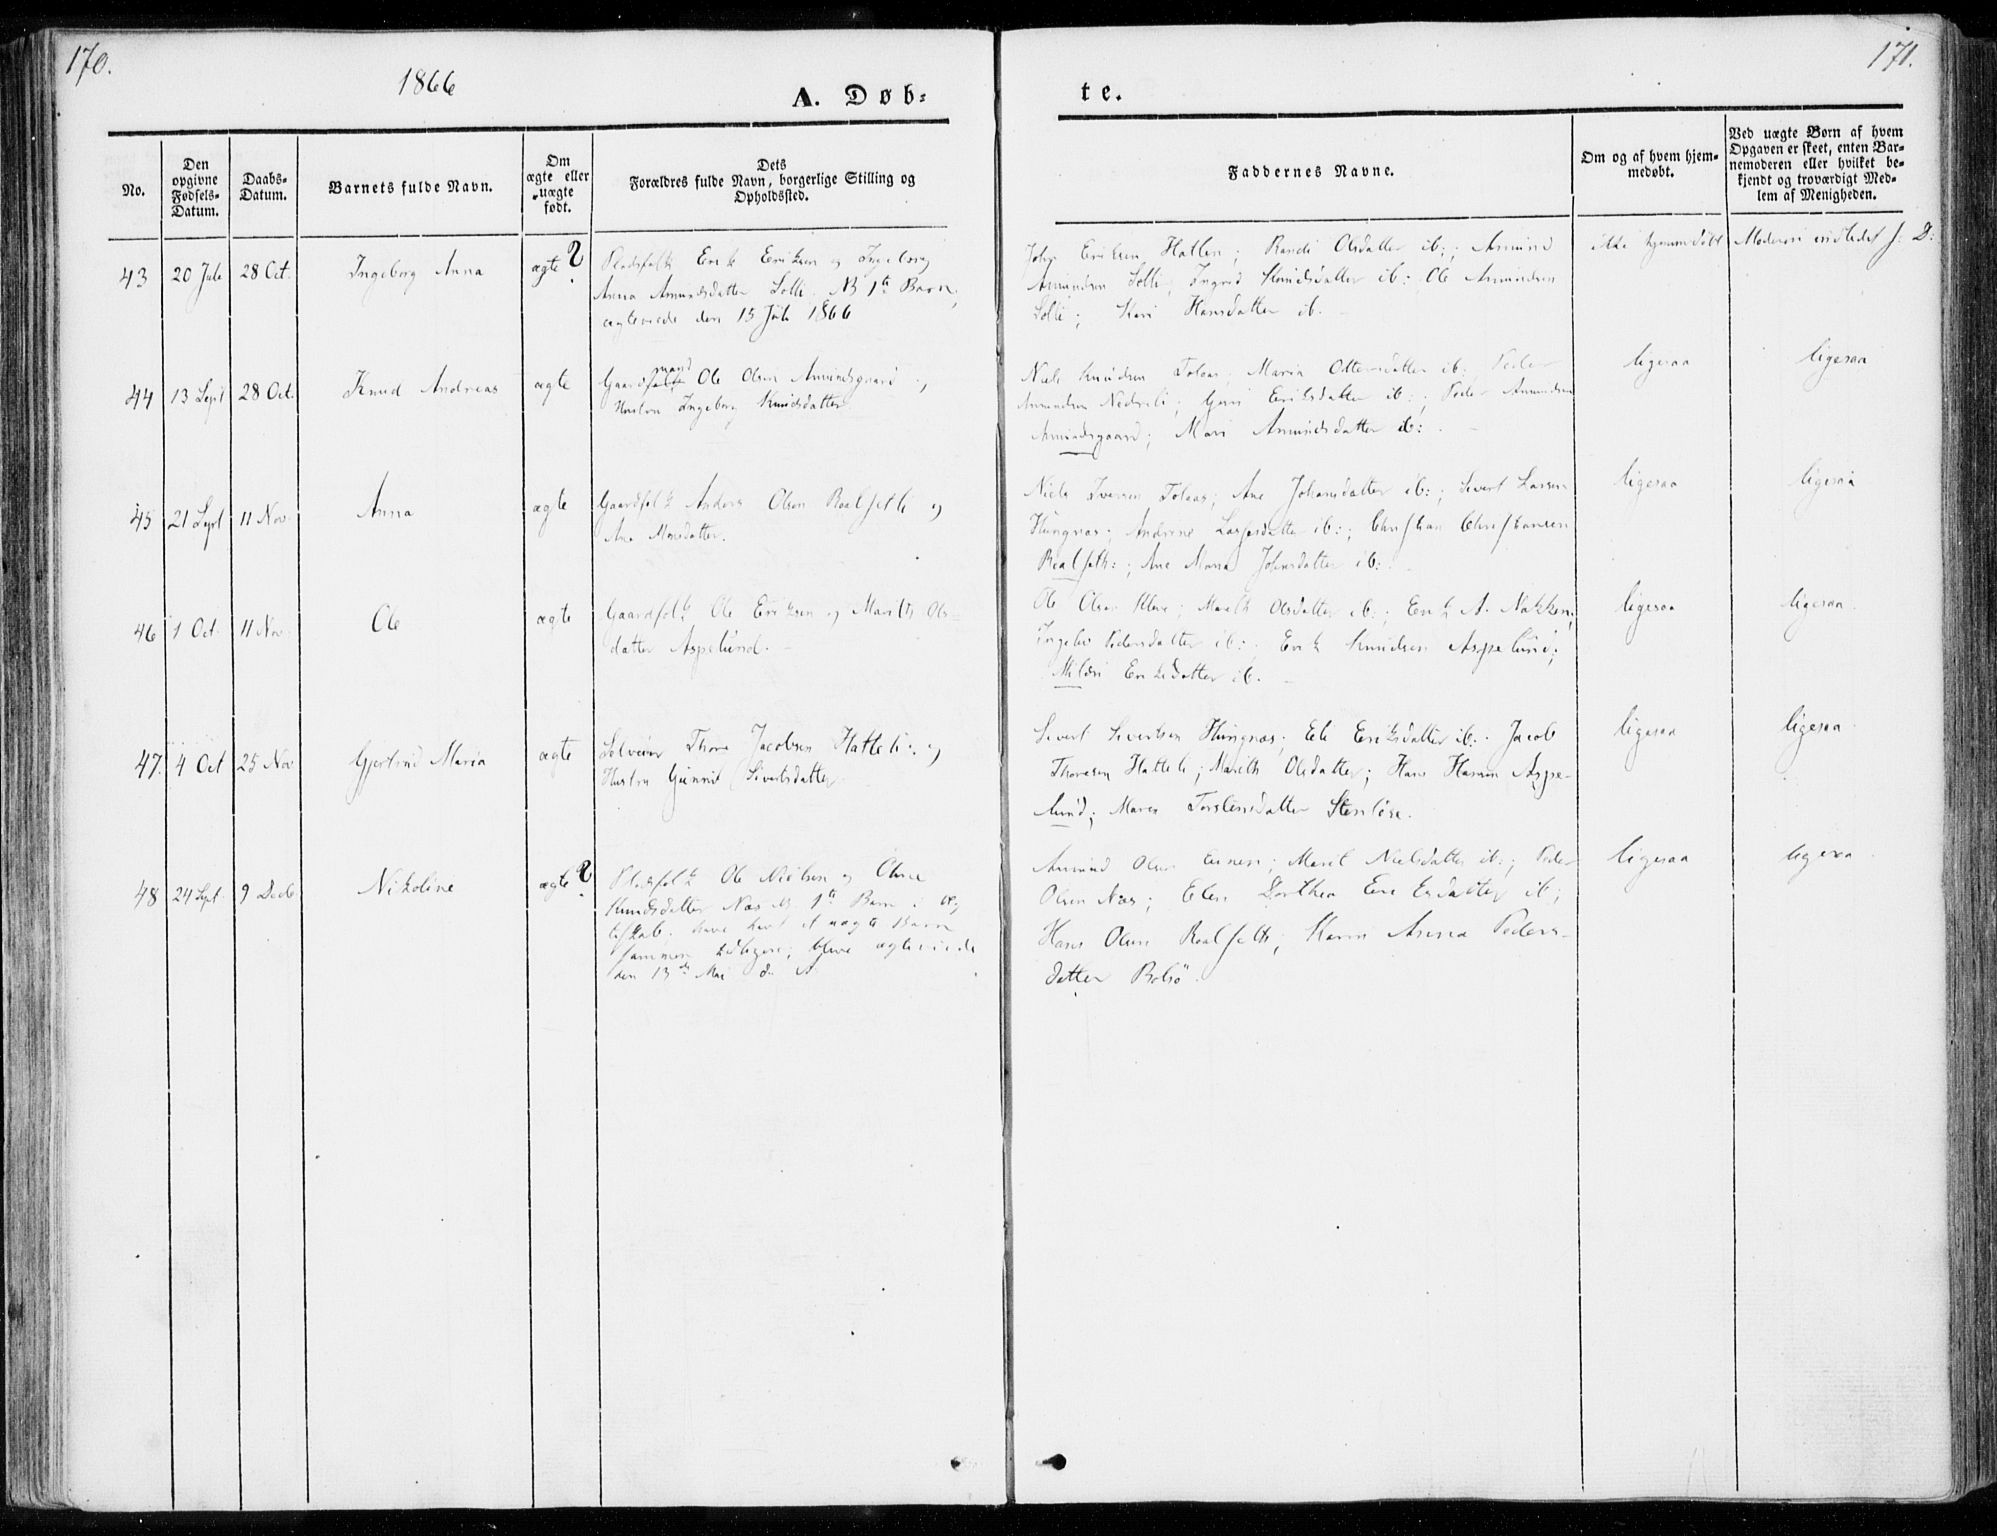 170.
1866
A. Døb-
te.
171.
No.
Den
opgivne
Fødsels-
Datum.
Daabs-
Datum.
Barnets fulde Navn.
Om
ægte eller
uægte
født.
Dets
Forældres fulde Navn, borgerlige Stilling og
Opholdssted.
Faddernes Navne.
Om og af hvem hjem-
medøbt.
Ved uægte Børn af hvem
Opgaven er skeet, enten Bar-
nemoderen eller hvilket be-
kjendt og troværdigt Med-
lem af Menigheden.
43
20 Juli
28 Oct.
Ingeborg Anna
ægte ?
Pladsfolk Erik Eriksen og Ingeborg
Anna Amundsdatter Solli. NB 1ste Barn,
ægteviede den 15 Juli 1866
John Eriksen Hatlen; Randi Olsdatter ib:; Amund
Amundsen Solli; Ingrid Knudsdatter ib: Ole Amundsen
Solli; Kari Hansdatter ib.
ikke hjemmedøbt
Moderen
44
13 Sept
28 Oct.
Knud Andreas
ægte
mand
Gaardfolk Ole Olsen Amundsgaard og
Hustru Ingeborg Knudsdatter
Niels Knudsen Tolaas; Maria Ottersdatter ib: Peder
Amundsen Nedreli; Guri Eriksdatter ib:; Peder Amundsen
Amundsgaard; Mari Amundsdatter ib:
ligesaa
ligesaa
45
21 Sept
11 Nov.
Anna
ægte
Gaardfolk Anders Olsen Roalsetli og
Ane Monsdatter.
Niels Iversen Tolaas; Ane Johansdatter ib:; Sivert Larsen
Hungnæs; Andrine Lassesdatter ib:; Christian Christiansen
Roalseth:; Ane Maria Johnsdatter ib:
ligesaa
ligesaa
46
1 Oct.
11 Nov.
Ole
ægte
Gaardfolk Ole Eriksen og Marith Ols-
datter Aspelund.
Ole Olsen Kleve; Marith Olsdatter ib:; Erik A. Nakken;
Ingeb Pedersdatter ib:; Erik Knudsen Aspelund;
Mildri Eriksdatter ib.
ligesaa
ligesaa
47.
4 Oct
25 Nov
Gjertrud Maria
ægte
Selveier Thore Jacobsen Hatteli og
Hustru Gunnil Sivertsdatter
Sivert Sivertsen Hungnæs; Eli Eriksdatter ib: Jacob
Thoresen Hatteli; Marith Olsdatter; Hans Hansen Aspe-
lund; Maren Torstensdatter Stenløse.
ligesaa
ligesaa
48
24 Sept.
9 Decb
Nikoline
ægte ?
Pladsfolk Ole Nielsen og Oline
Knudsdatter Næs NB. 1ste Barn i Æg
teskab; have havt et uægte Barn
sammen tidligere; bleve ægteviede
den 13de Mai d. A.
Amund Olsen; Marit Nielsdatter ib:; Peder
Olsen Næs; Elen Dorthea Eriksdatter ib;
Hans Olsen Roalseth; Karen Anna Peders-
datter Bolsø.
ligesaa
ligesaa